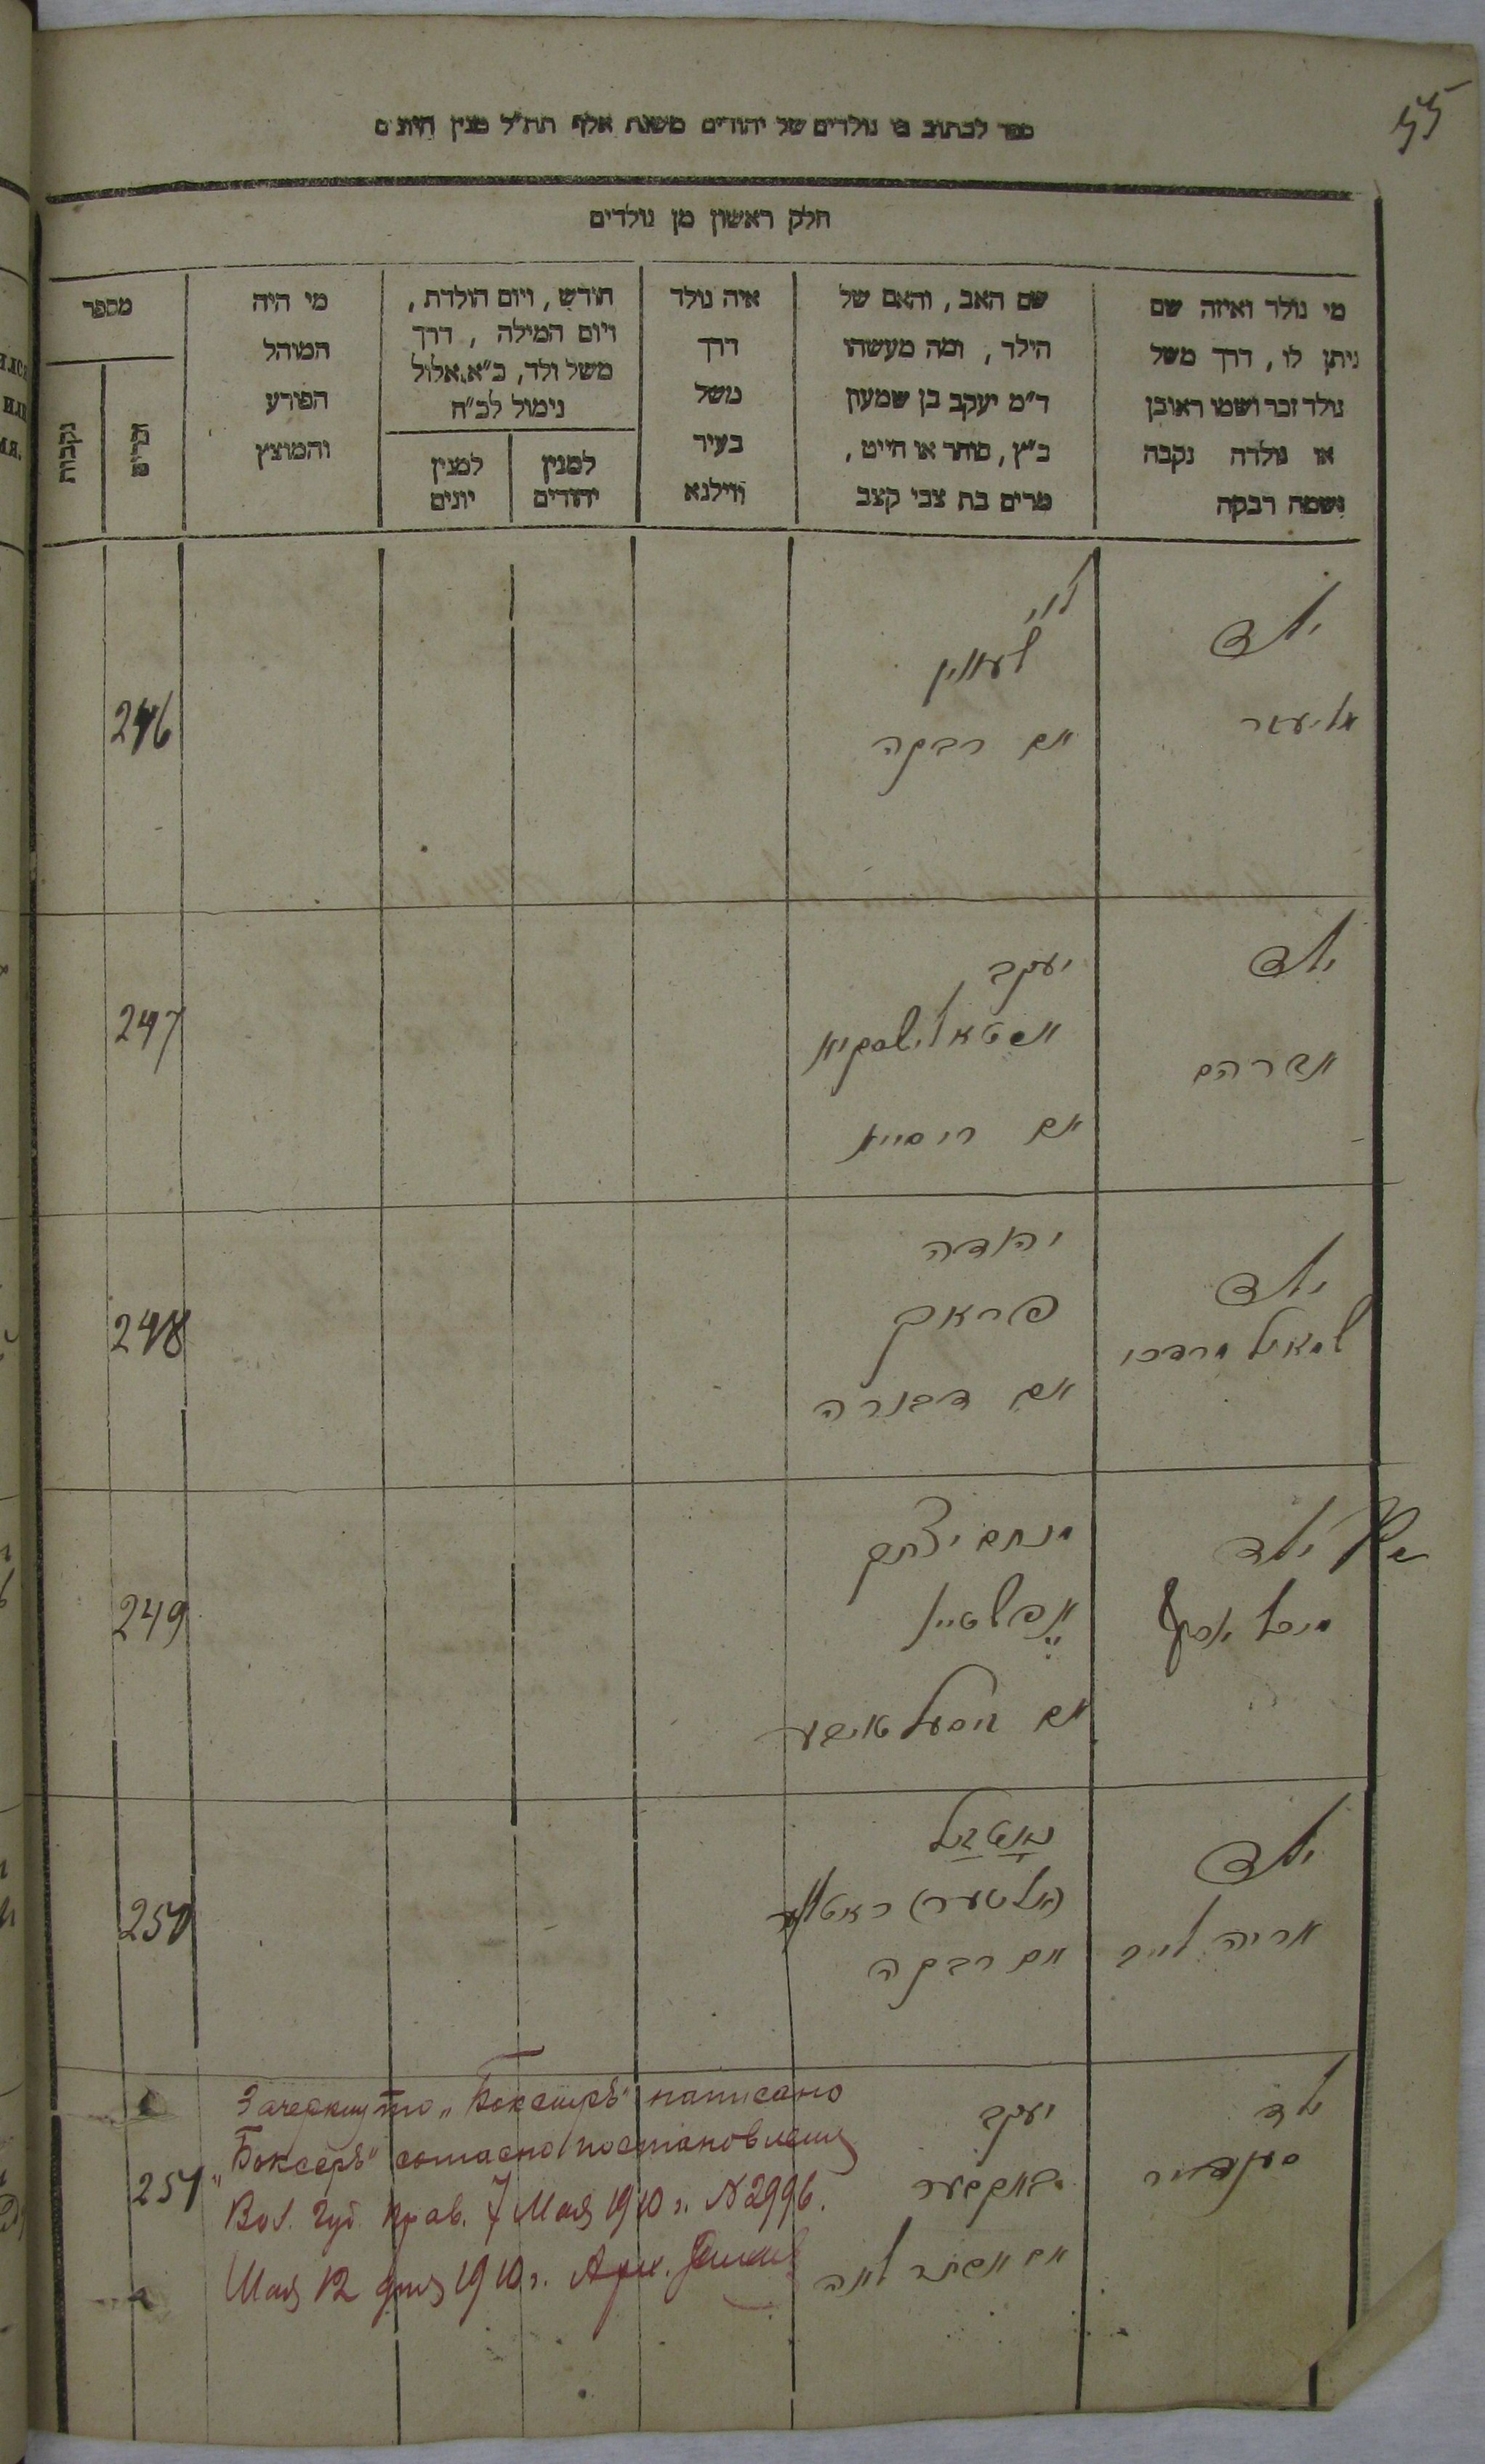 55
ספר לכתוב בו נולדים של יהודים משנת אלף תת״ל מנין היונים
חלק ראשון מן נולדים
מי נולד ואיזה שם
ניתן לו, דרך משל
נולד זכר ושמו ראובן
או נולדה נקבה
ושמה רבקה
שם האב, והאם של
הילד, ומה מעשהו
ד״מ יעקב בן שמעון
כ״ץ, סוחר או חייט,
מרים בת צבי קצב
איה נולד
דרך
משל
בעיר
ווילנא
חודש, ויום הולדת,
ויום המילה, דרך
משל ולד, כ״א אלול
נימול לכ״ח
למנין
יהודים
למנין
יונים
מי היה
המוהל
הפורע
והמוצץ
מספר
זכרים
נקבות
ילד
אליעזר
לוי
אם רבקה
246
ילד
אברהם
יעקב
אם
247
ילד
שמואל מרדכי
יהודה
פראק
אם דבורה
248
ילד
יוסף
מנחם
עפשטיין
אם
249
ילד
אריה לייב
(אלטער)
אם רבקה
250
ילד
סענדער
יעקב
באקסער
אם אסתר לאה
251
Зачеркнуто „Боксиръ" написано
„Боксеръ" согласно постановленія
Вол. Губ. Прав. 7 Мая 1910 г. № 2996.
Мая 12 дня 1910 г.